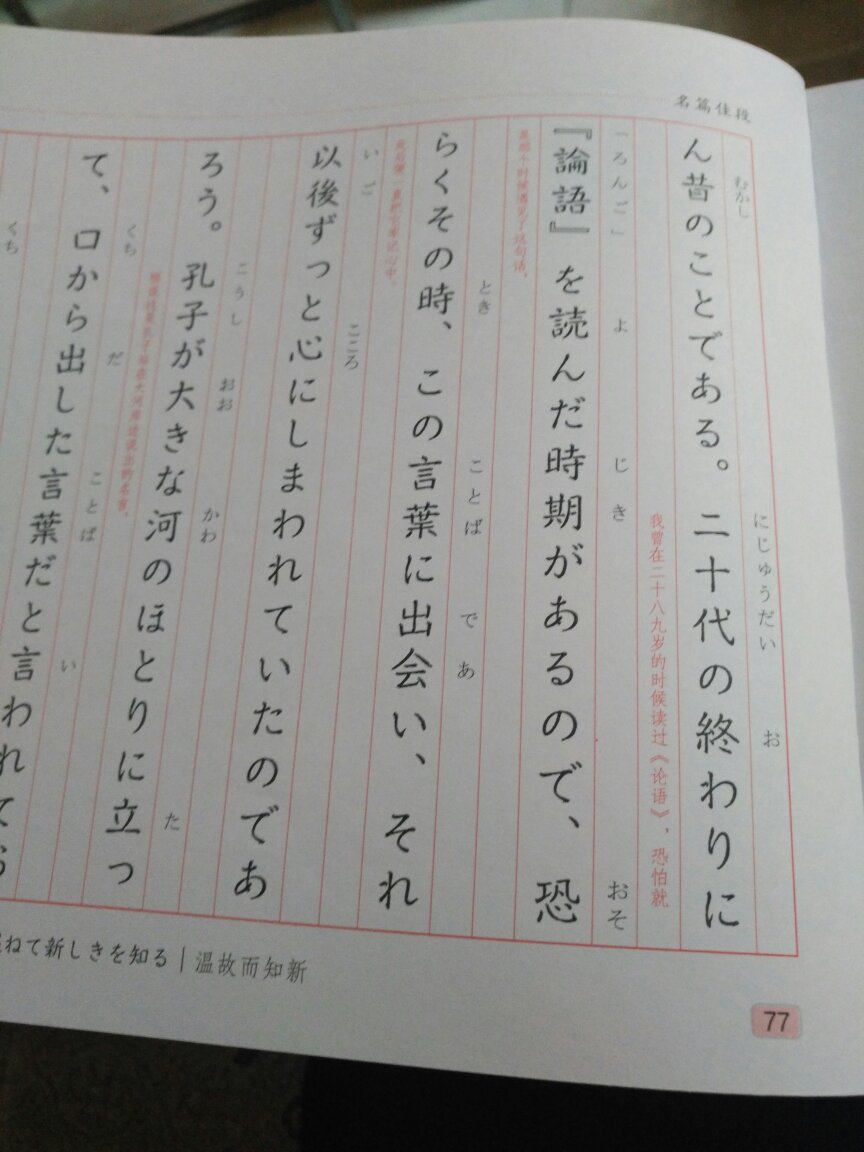 名篇佳段
むかし にじゅうだい お
ん昔のことである。二十代の終わりに
我曾在二十八九岁的时候读过《论语》，恐怕就
「ろんご」 よ じき おそ
『論語』を読んだ時期があるので、恐
是那个时候遇见了这句话，
とき ことば であ
らくその時、この言葉に出会い、それ
いご こころ
以後ずっと心にしまわれていたのであ
こうし おお かわ た
ろう。孔子が大きな河のほとりに立っ
くち だ ことば い
て、口から出した言葉だと言われてお
くち
ねて新しきを知る｜温故而知新
77